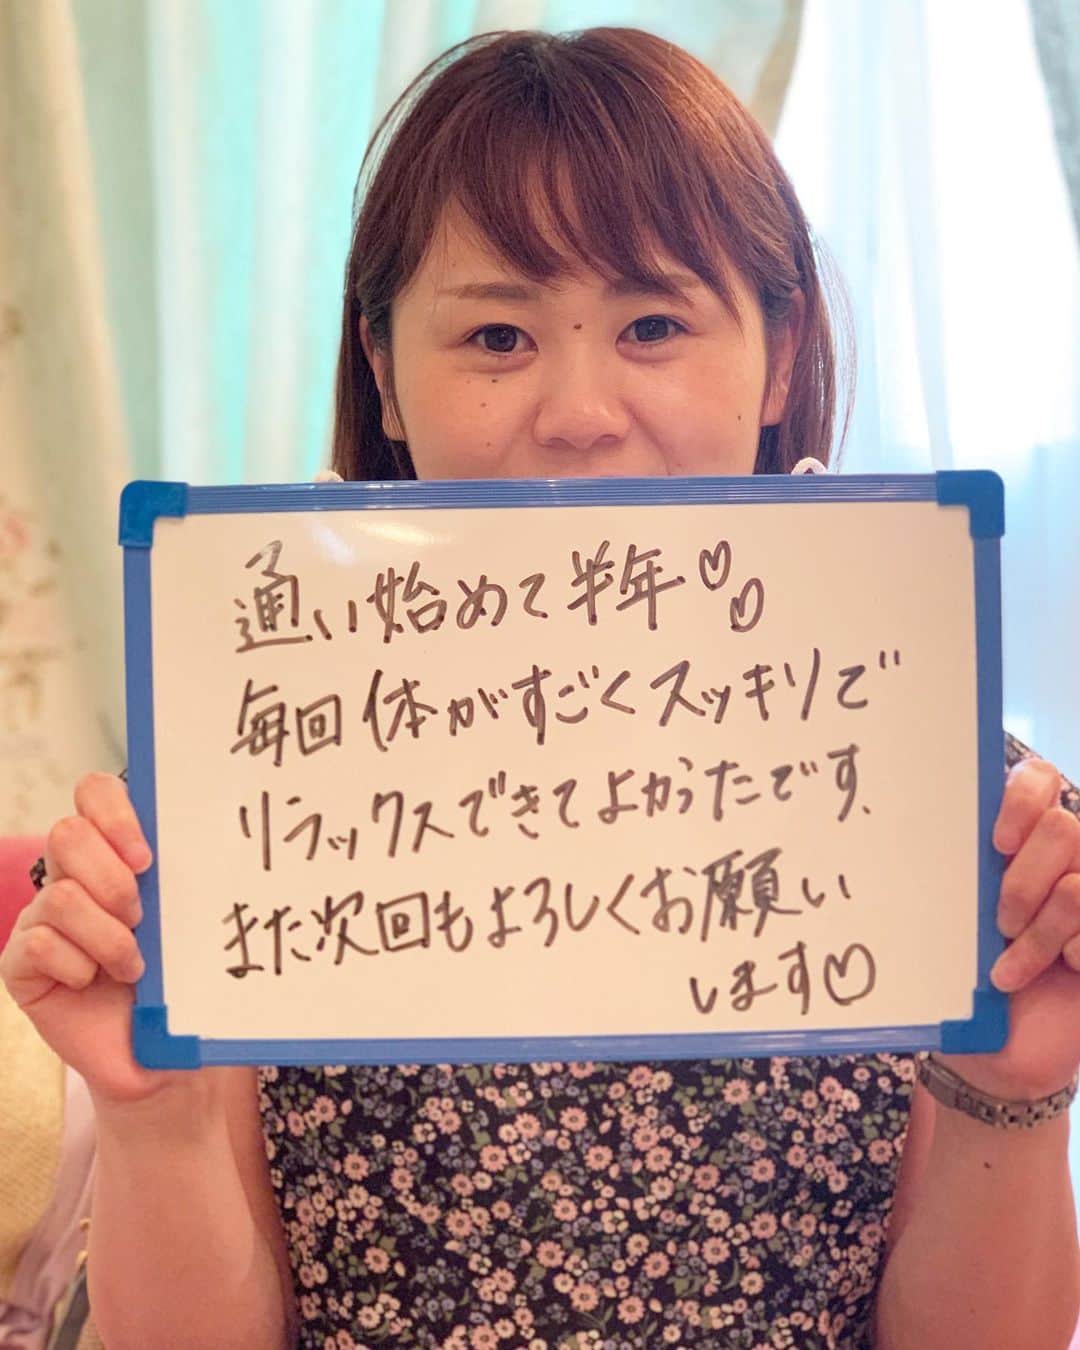 通い始めて半年♡♡
毎回体がすごくスッキリで
リラックスできてよかったです、
また次回もよろしくお願い
します♡